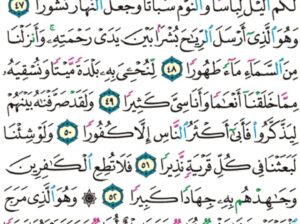 لَكُمُ ٱلَّيْلَ لِبَاسًا وَٱلنَّوْمَ سُبَاتًا وَجَعَلَ ٱلنَّهَارَ نُشُورًا ٤٧
وَهُوَ ٱلَّذِىٓ أَرْسَلَ ٱلرِّيَٰحَ بُشْرًۢا بَيْنَ يَدَىْ رَحْمَتِهِۦ ۚ وَأَنزَلْنَا
مِنَ ٱلسَّمَآءِ مَآءً طَهُورًا ٤٨ لِّنُحْـِۧىَ بِهِۦ بَلْدَةً مَّيْتًا وَنُسْقِيَهُۥ
مِمَّا خَلَقْنَآ أَنْعَٰمًا وَأَنَاسِىَّ كَثِيرًا ٤٩ وَلَقَدْ صَرَّفْنَٰهُ بَيْنَهُمْ
لِيَذَّكَّرُوا۟ فَأَبَىٰٓ أَكْثَرُ ٱلنَّاسِ إِلَّا كُفُورًا ٥٠ وَلَوْ شِئْنَا
لَبَعَثْنَا فِى كُلِّ قَرْيَةٍ نَّذِيرًا ٥١ فَلَا تُطِعِ ٱلْكَٰفِرِينَ
وَجَٰهِدْهُم بِهِۦ جِهَادًا كَبِيرًا ٥٢ ۞ وَهُوَ ٱلَّذِى مَرَجَ